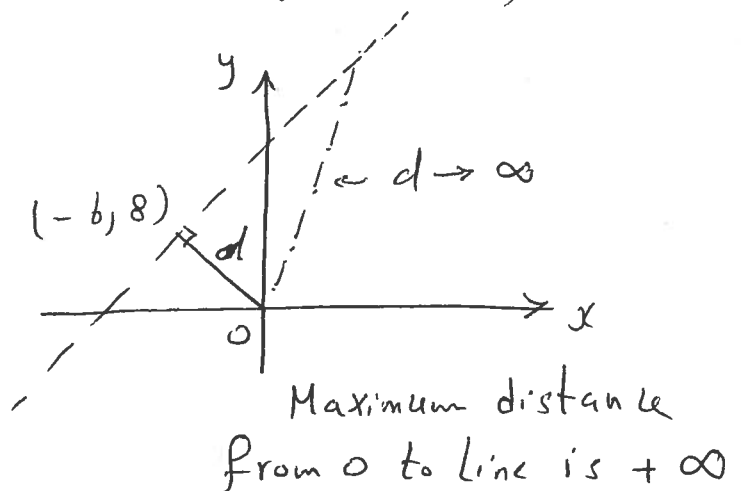 y
d → ∞
(-6, 8)
d
0
x
Maximum distance
from 0 to line is + ∞